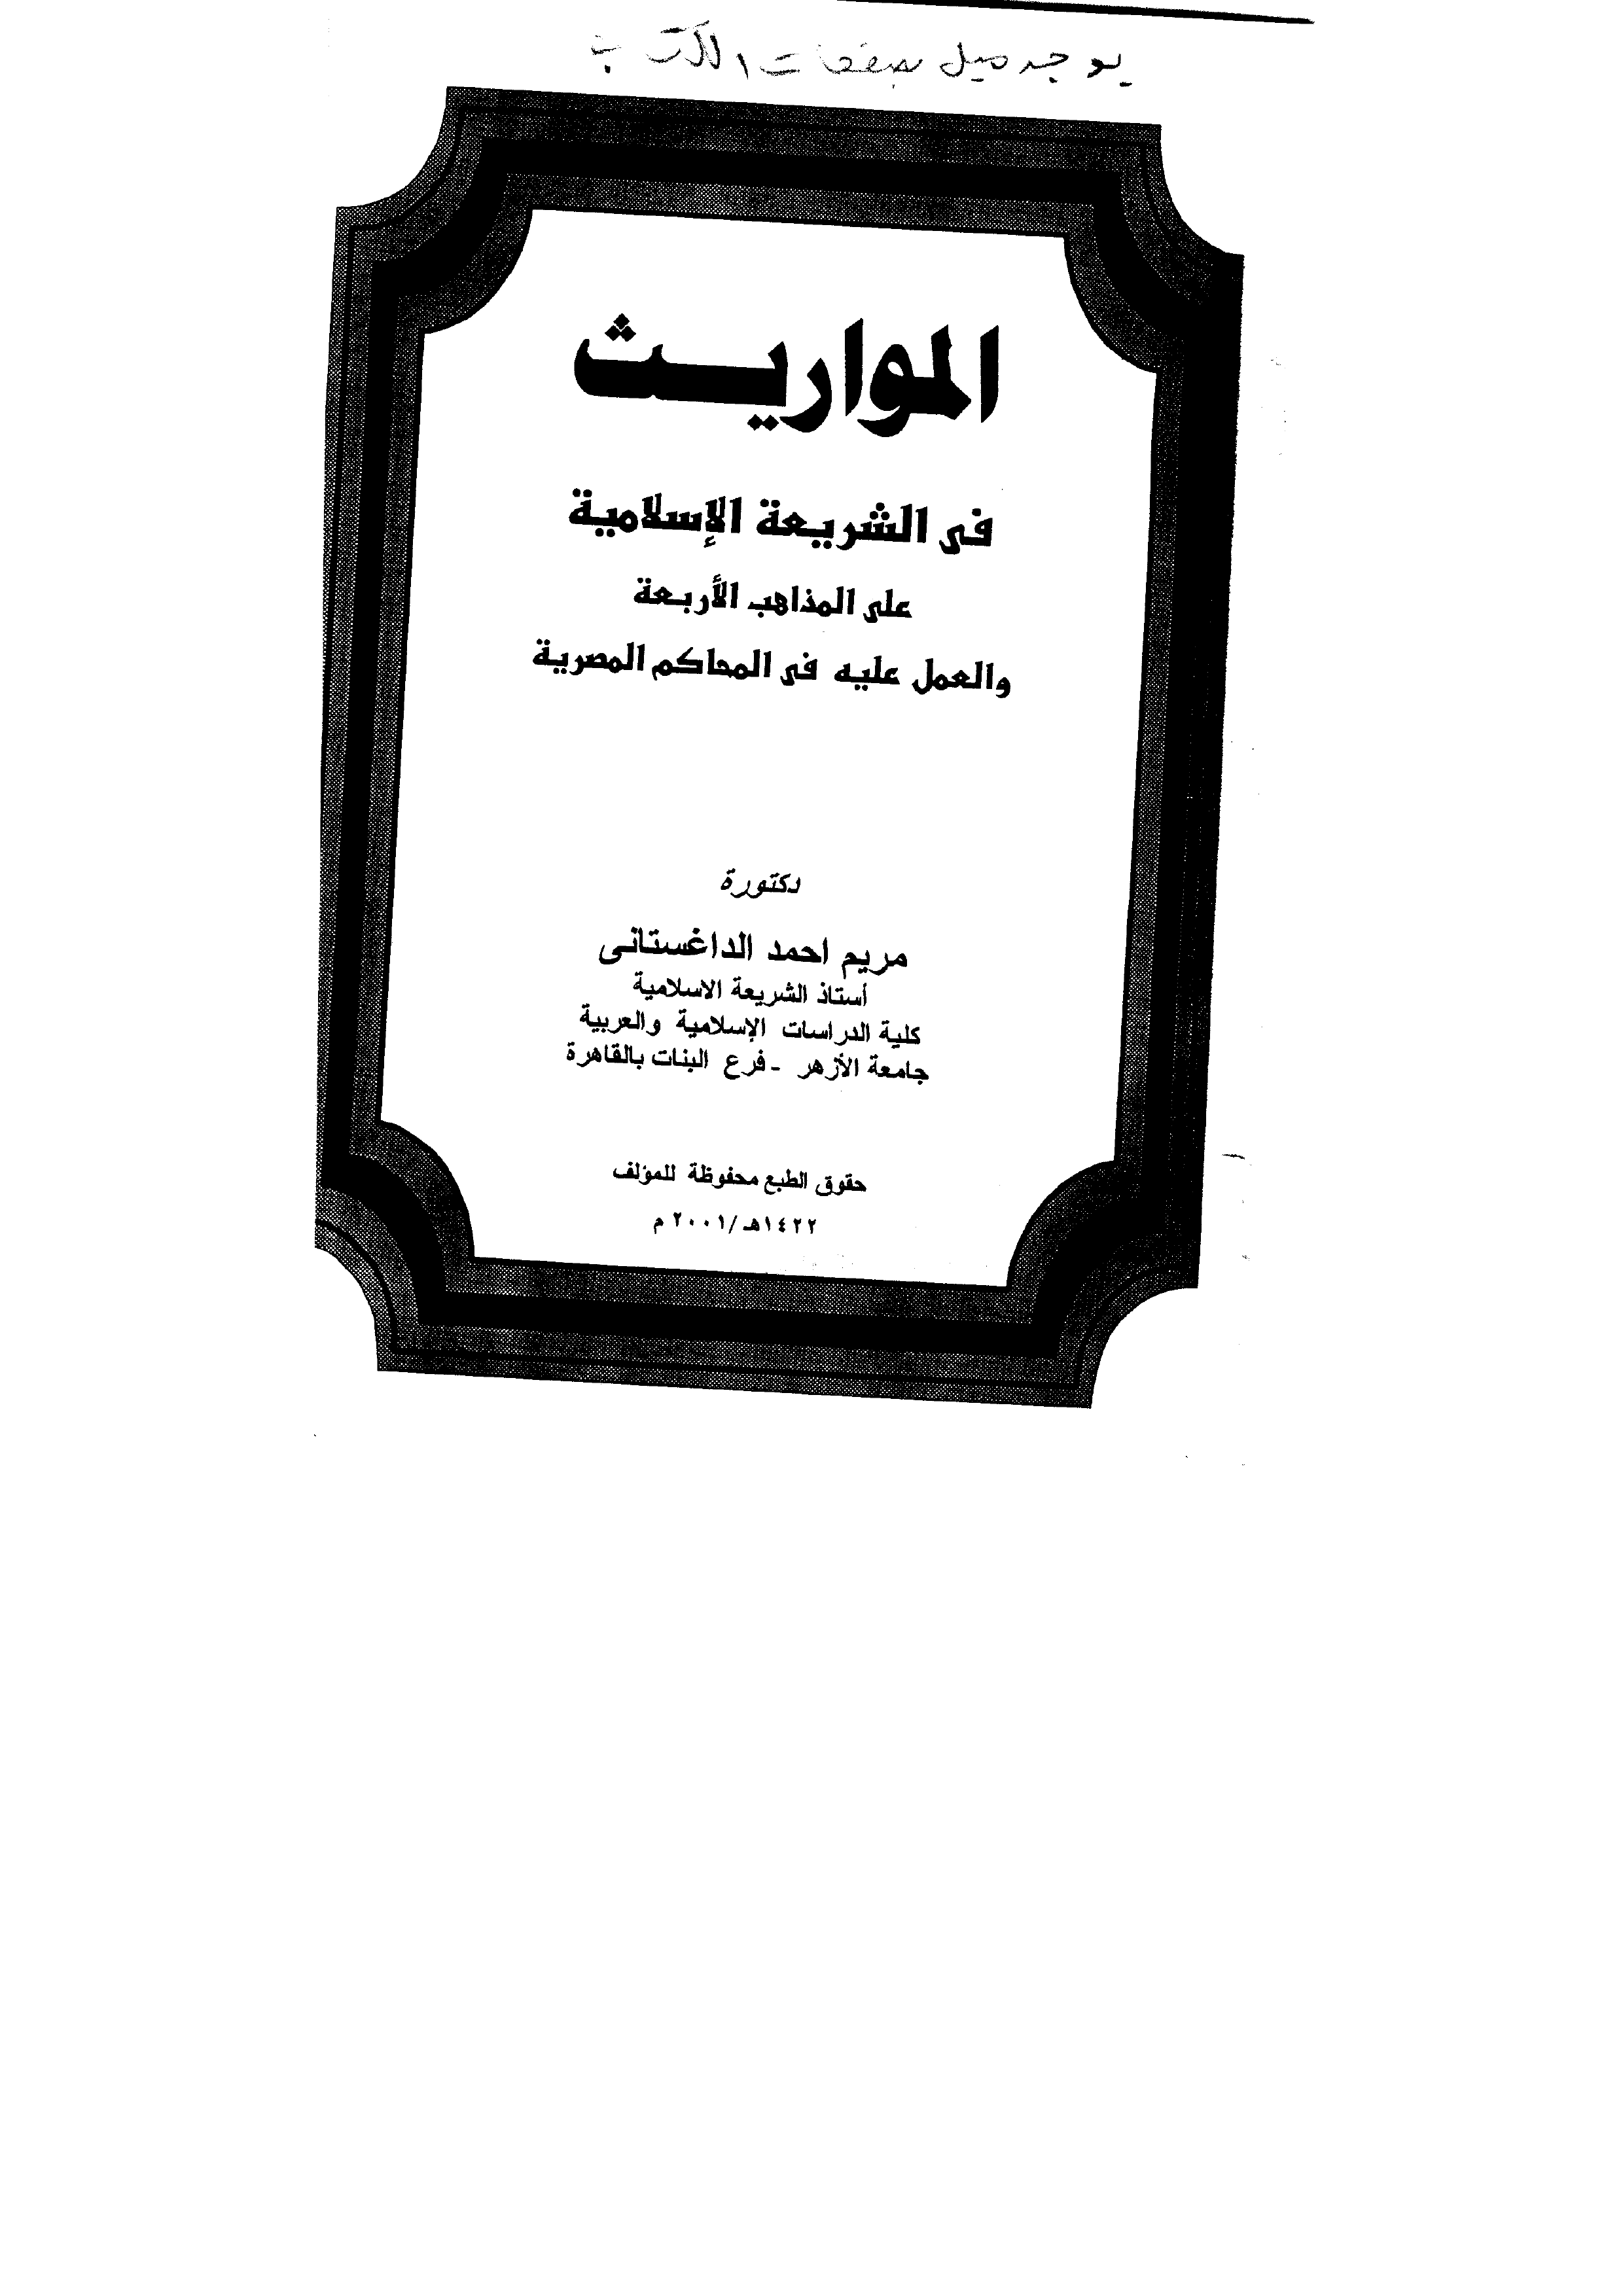 يوجد ميل بصفحات الكتاب
المواريث
فى الشريعة الإسلامية
على المذاهب الأربعة
والعمل عليه فى المحاكم المصرية
دكتورة
مريم احمد الداغستانى
أستاذ الشريعة الاسلامية
كلية الدراسات الإسلامية والعربية
جامعة الأزهر - فرع البنات بالقاهرة
حقوق الطبع محفوظة للمؤلف
١٤٢٢هـ/٢٠٠١ م